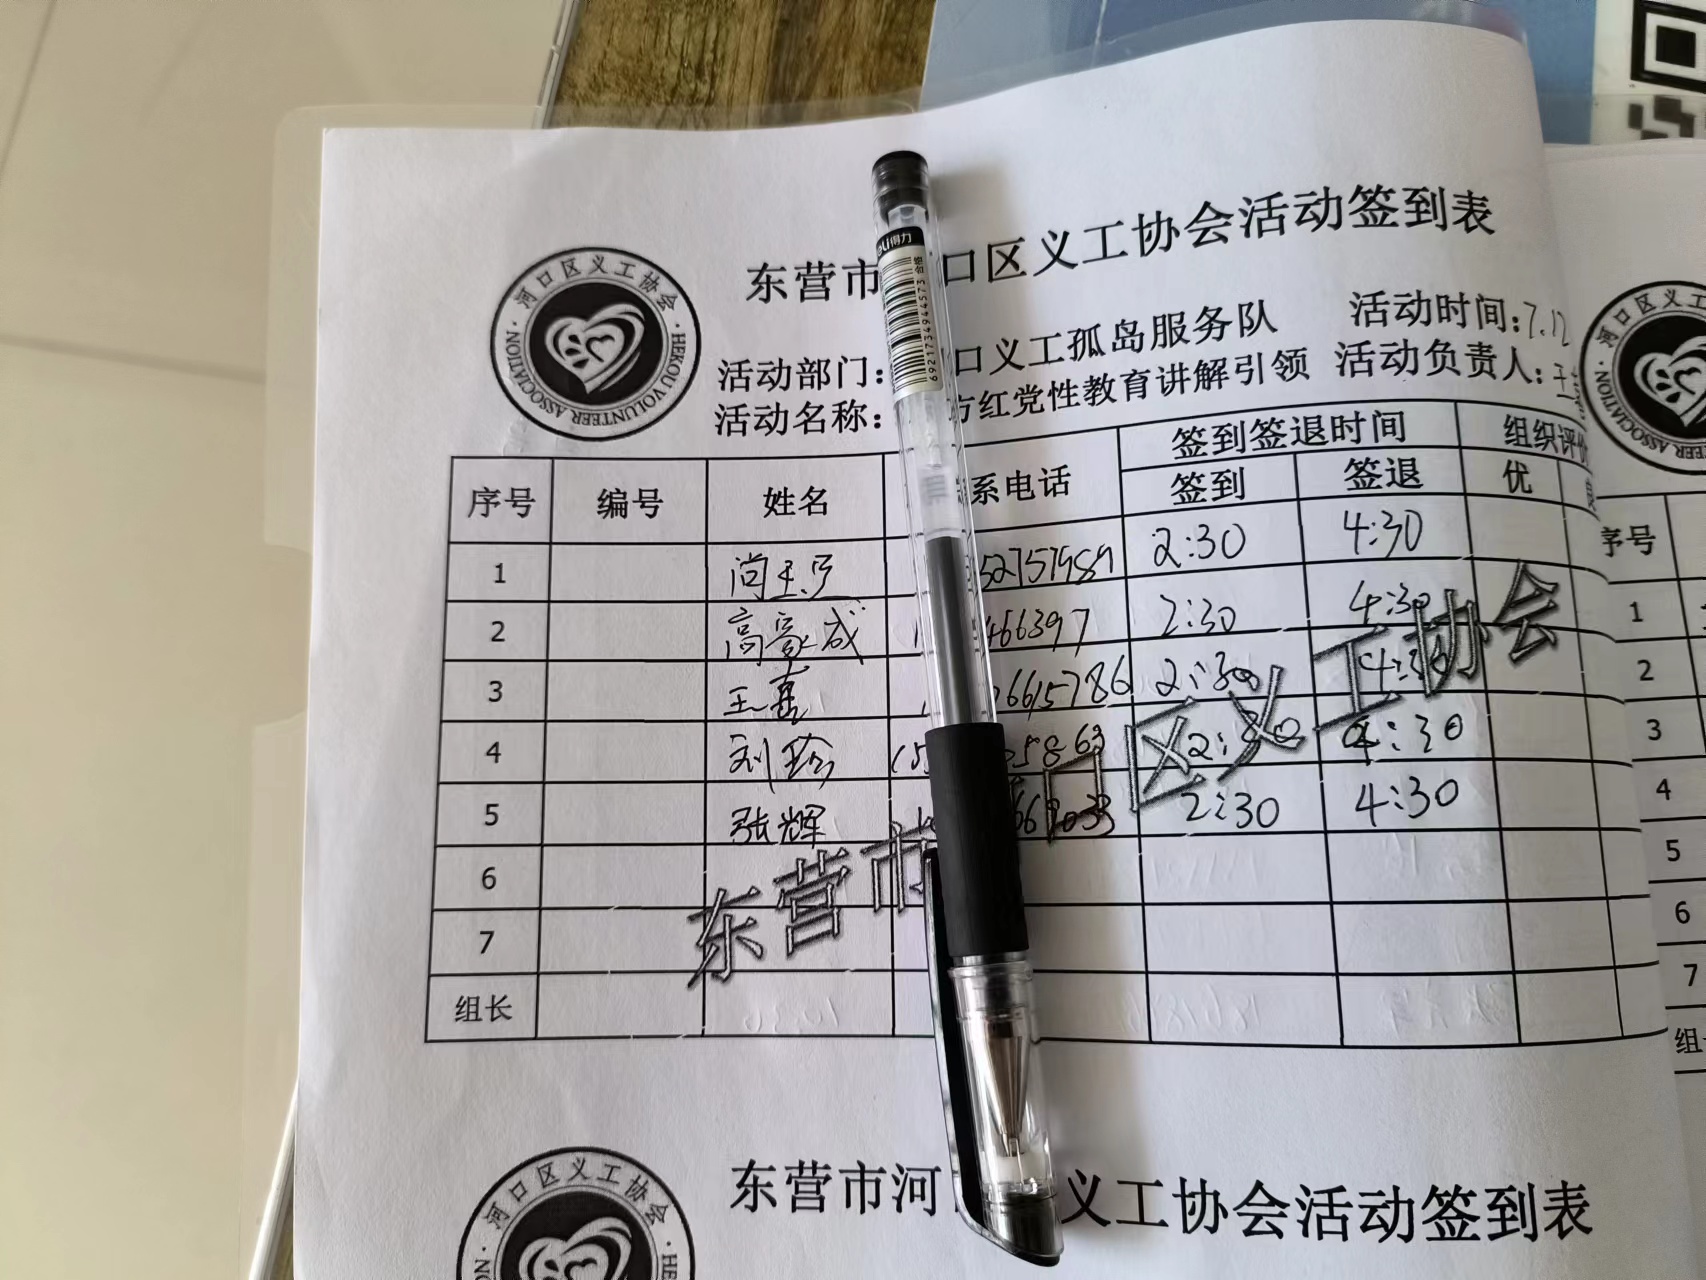 东营市 口区义工协会活动签到表
河口区义工协会
HEKOU VOLUNTEER ASSOCIATION
活动部门: 口义工孤岛服务队 活动时间:7.12
活动名称: 方红党性教育讲解引领 活动负责人:
得力
6921734944573
序号 编号 姓名 系电话 签到签退时间 组织评价
签到 签退 优
1 2:30 4:30
2 高豪成 466397 2:30 4:30
3 王喜 6615786 2:30 4:30
4 刘珍 5863 2:30 4:30
5 张辉 2:30 4:30
6
7
组长
东营市 口区义工协会
东营市河 义工协会活动签到表
河口区义工协会
序号
1
2
3
4
5
6
7